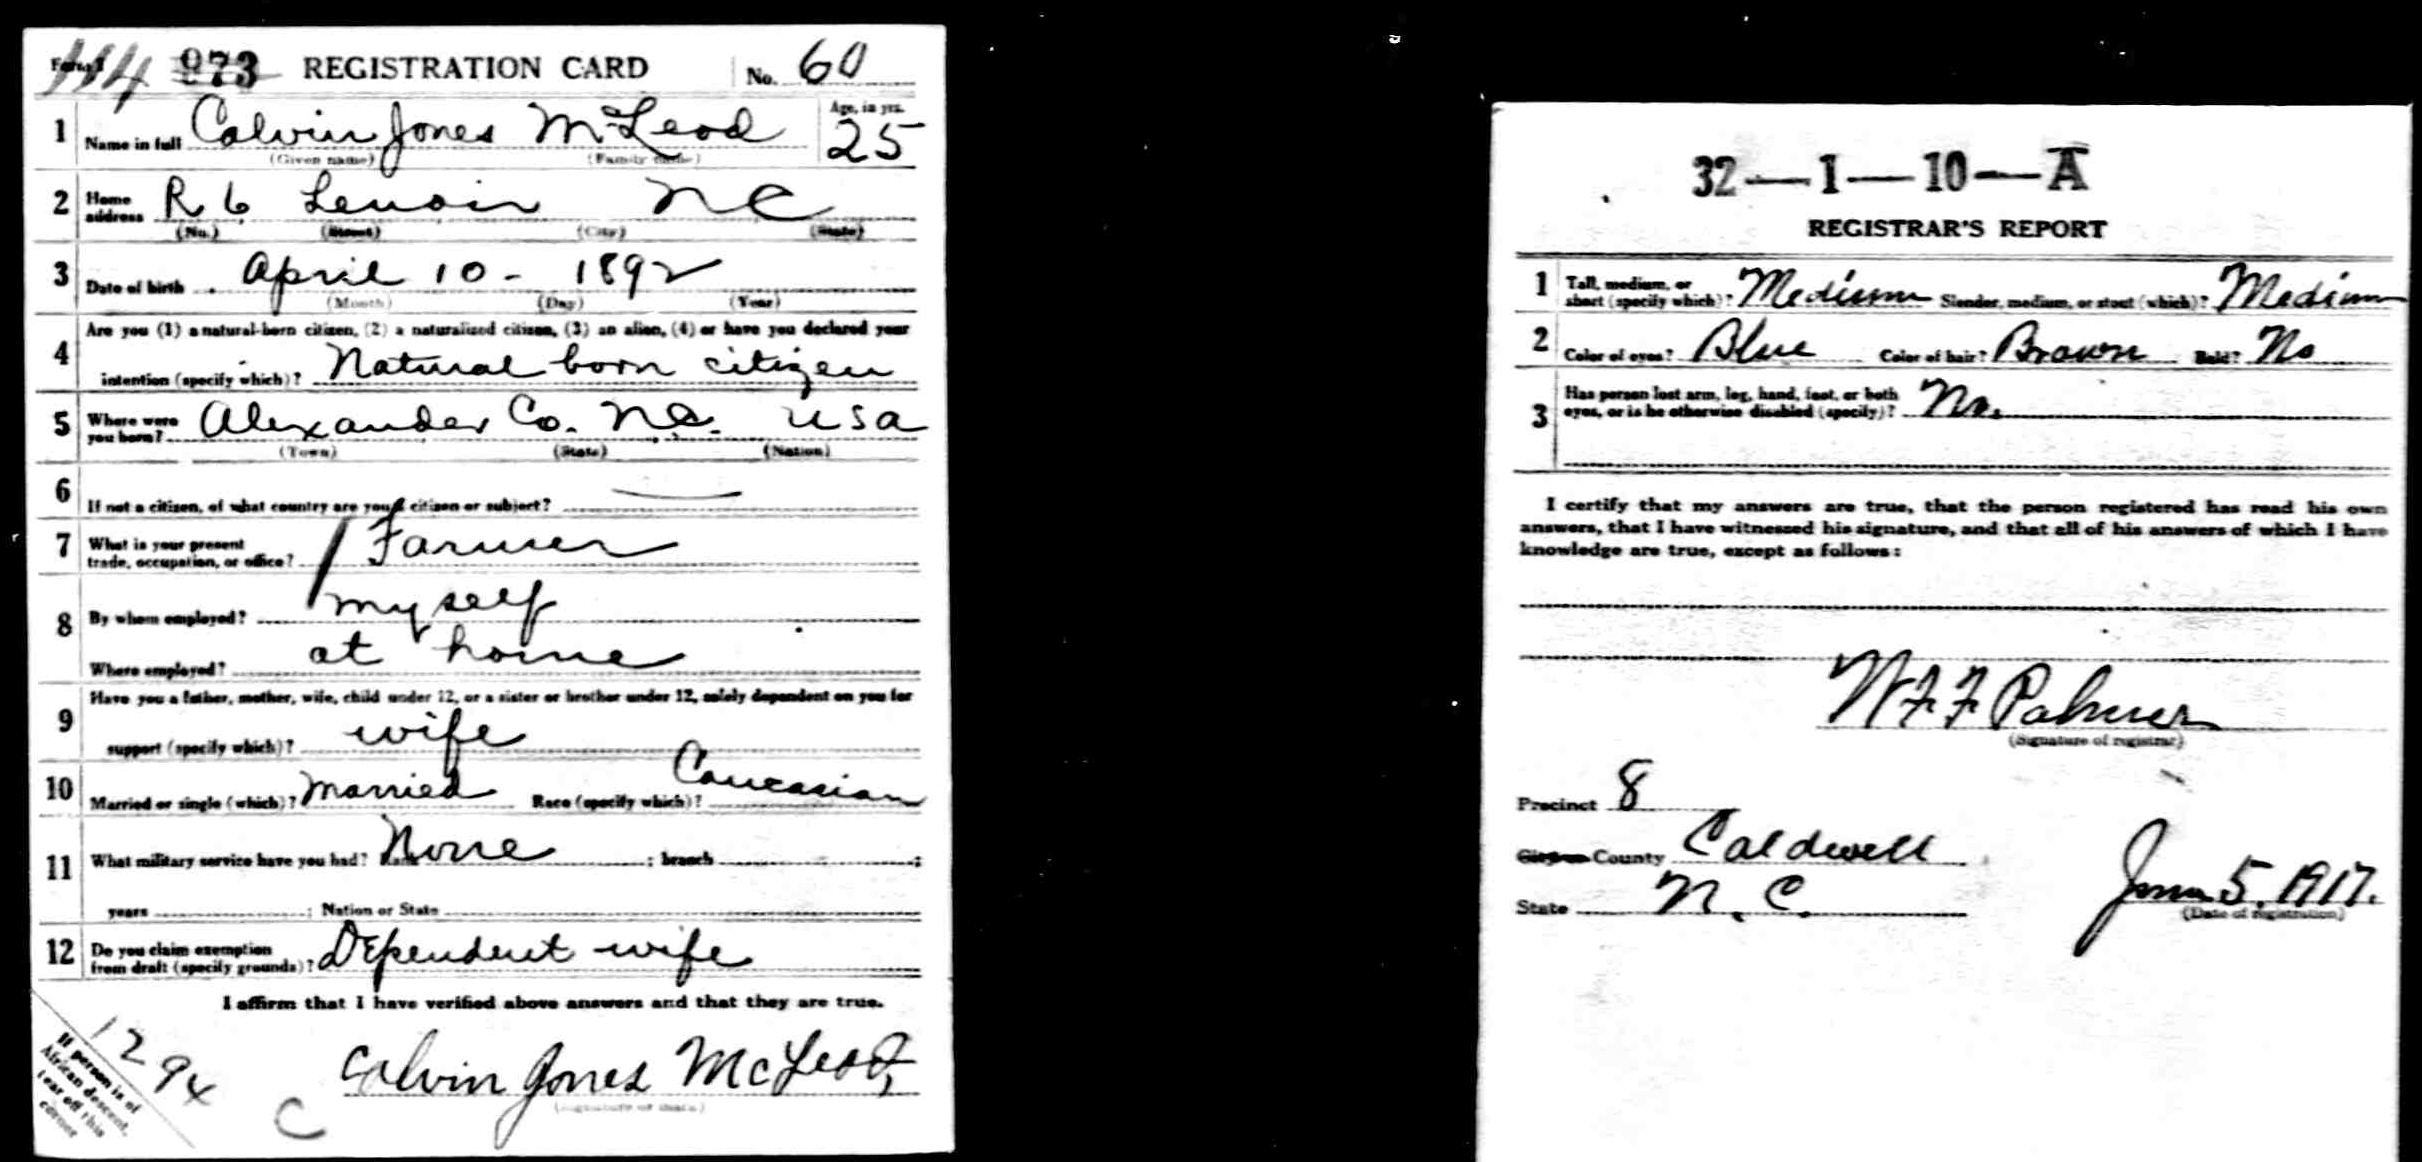 Form 1 114 973 REGISTRATION CARD No. 60
1 Name in full Calvin Jones McLeod Age, in yrs. 25
(Given name) (Family name)
2 Home address R 6 Lenoir N C
(No.) (Street) (City) (State)
3 Date of birth April 10 - 1892
(Month) (Day) (Year)
4 Are you (1) a natural-born citizen, (2) a naturalized citizen, (3) an alien, (4) or have you declared your
intention (specify which)? Natural born citizen
5 Where were you born? Alexander Co. N.C. USA
(Town) (State) (Nation)
6 If not a citizen, of what country are you a citizen or subject?
7 What is your present trade, occupation, or office? Farmer
8 By whom employed? myself
Where employed? at home
9 Have you a father, mother, wife, child under 12, or a sister or brother under 12, solely dependent on you for
support (specify which)? wife
10 Married or single (which)? Married Race (specify which)? Caucasian
11 What military service have you had? Rank None ; branch ;
years ; Nation or State
12 Do you claim exemption from draft (specify grounds)? Dependent wife
I affirm that I have verified above answers and that they are true.
Calvin Jones McLeod
(Signature or mark)
If person is of
African descent,
tear off this
corner
1294
C
32—1—10—A
REGISTRAR'S REPORT
1 Tall, medium, or short (specify which)? Medium Slender, medium, or stout (which)? Medium
2 Color of eyes? Blue Color of hair? Brown Bald? No
3 Has person lost arm, leg, hand, foot, or both
eyes, or is he otherwise disabled (specify)? No.
I certify that my answers are true, that the person registered has read his own
answers, that I have witnessed his signature, and that all of his answers of which I have
knowledge are true, except as follows:
W F F Palmer
(Signature of registrar)
Precinct 8
City or County Caldwell
State N. C. June 5, 1917.
(Date of registration)